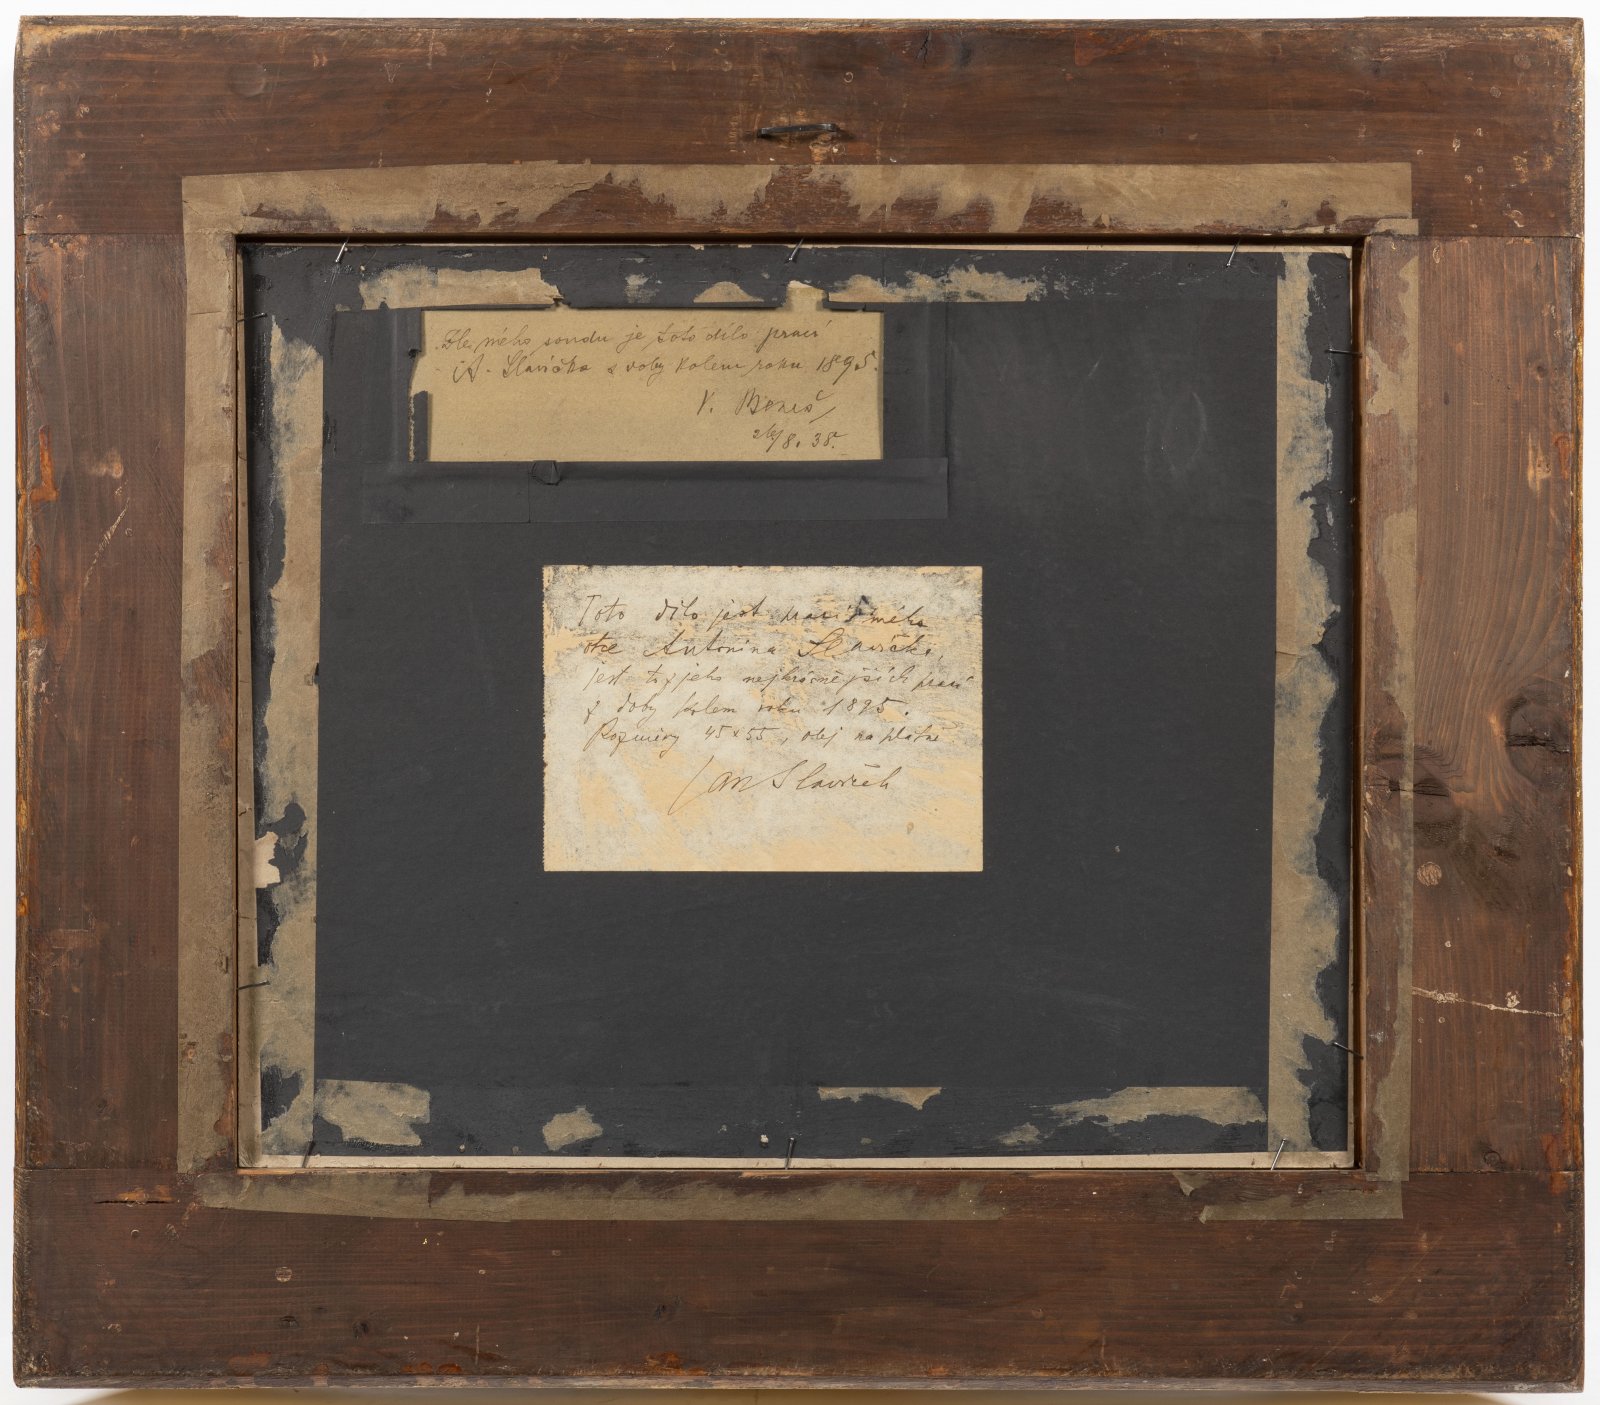 Dle mého soudu je toto dílo prací
A. Slavíčka z doby kolem roku 1895.
V. Beneš
26/8. 38.
Toto dílo jest prací mého
otce Antonína Slavíčka,
jest to z jeho nejkrásnějších prací
z doby kolem roku 1895.
Rozměry 45x55, olej na plátně
Jan Slavíček